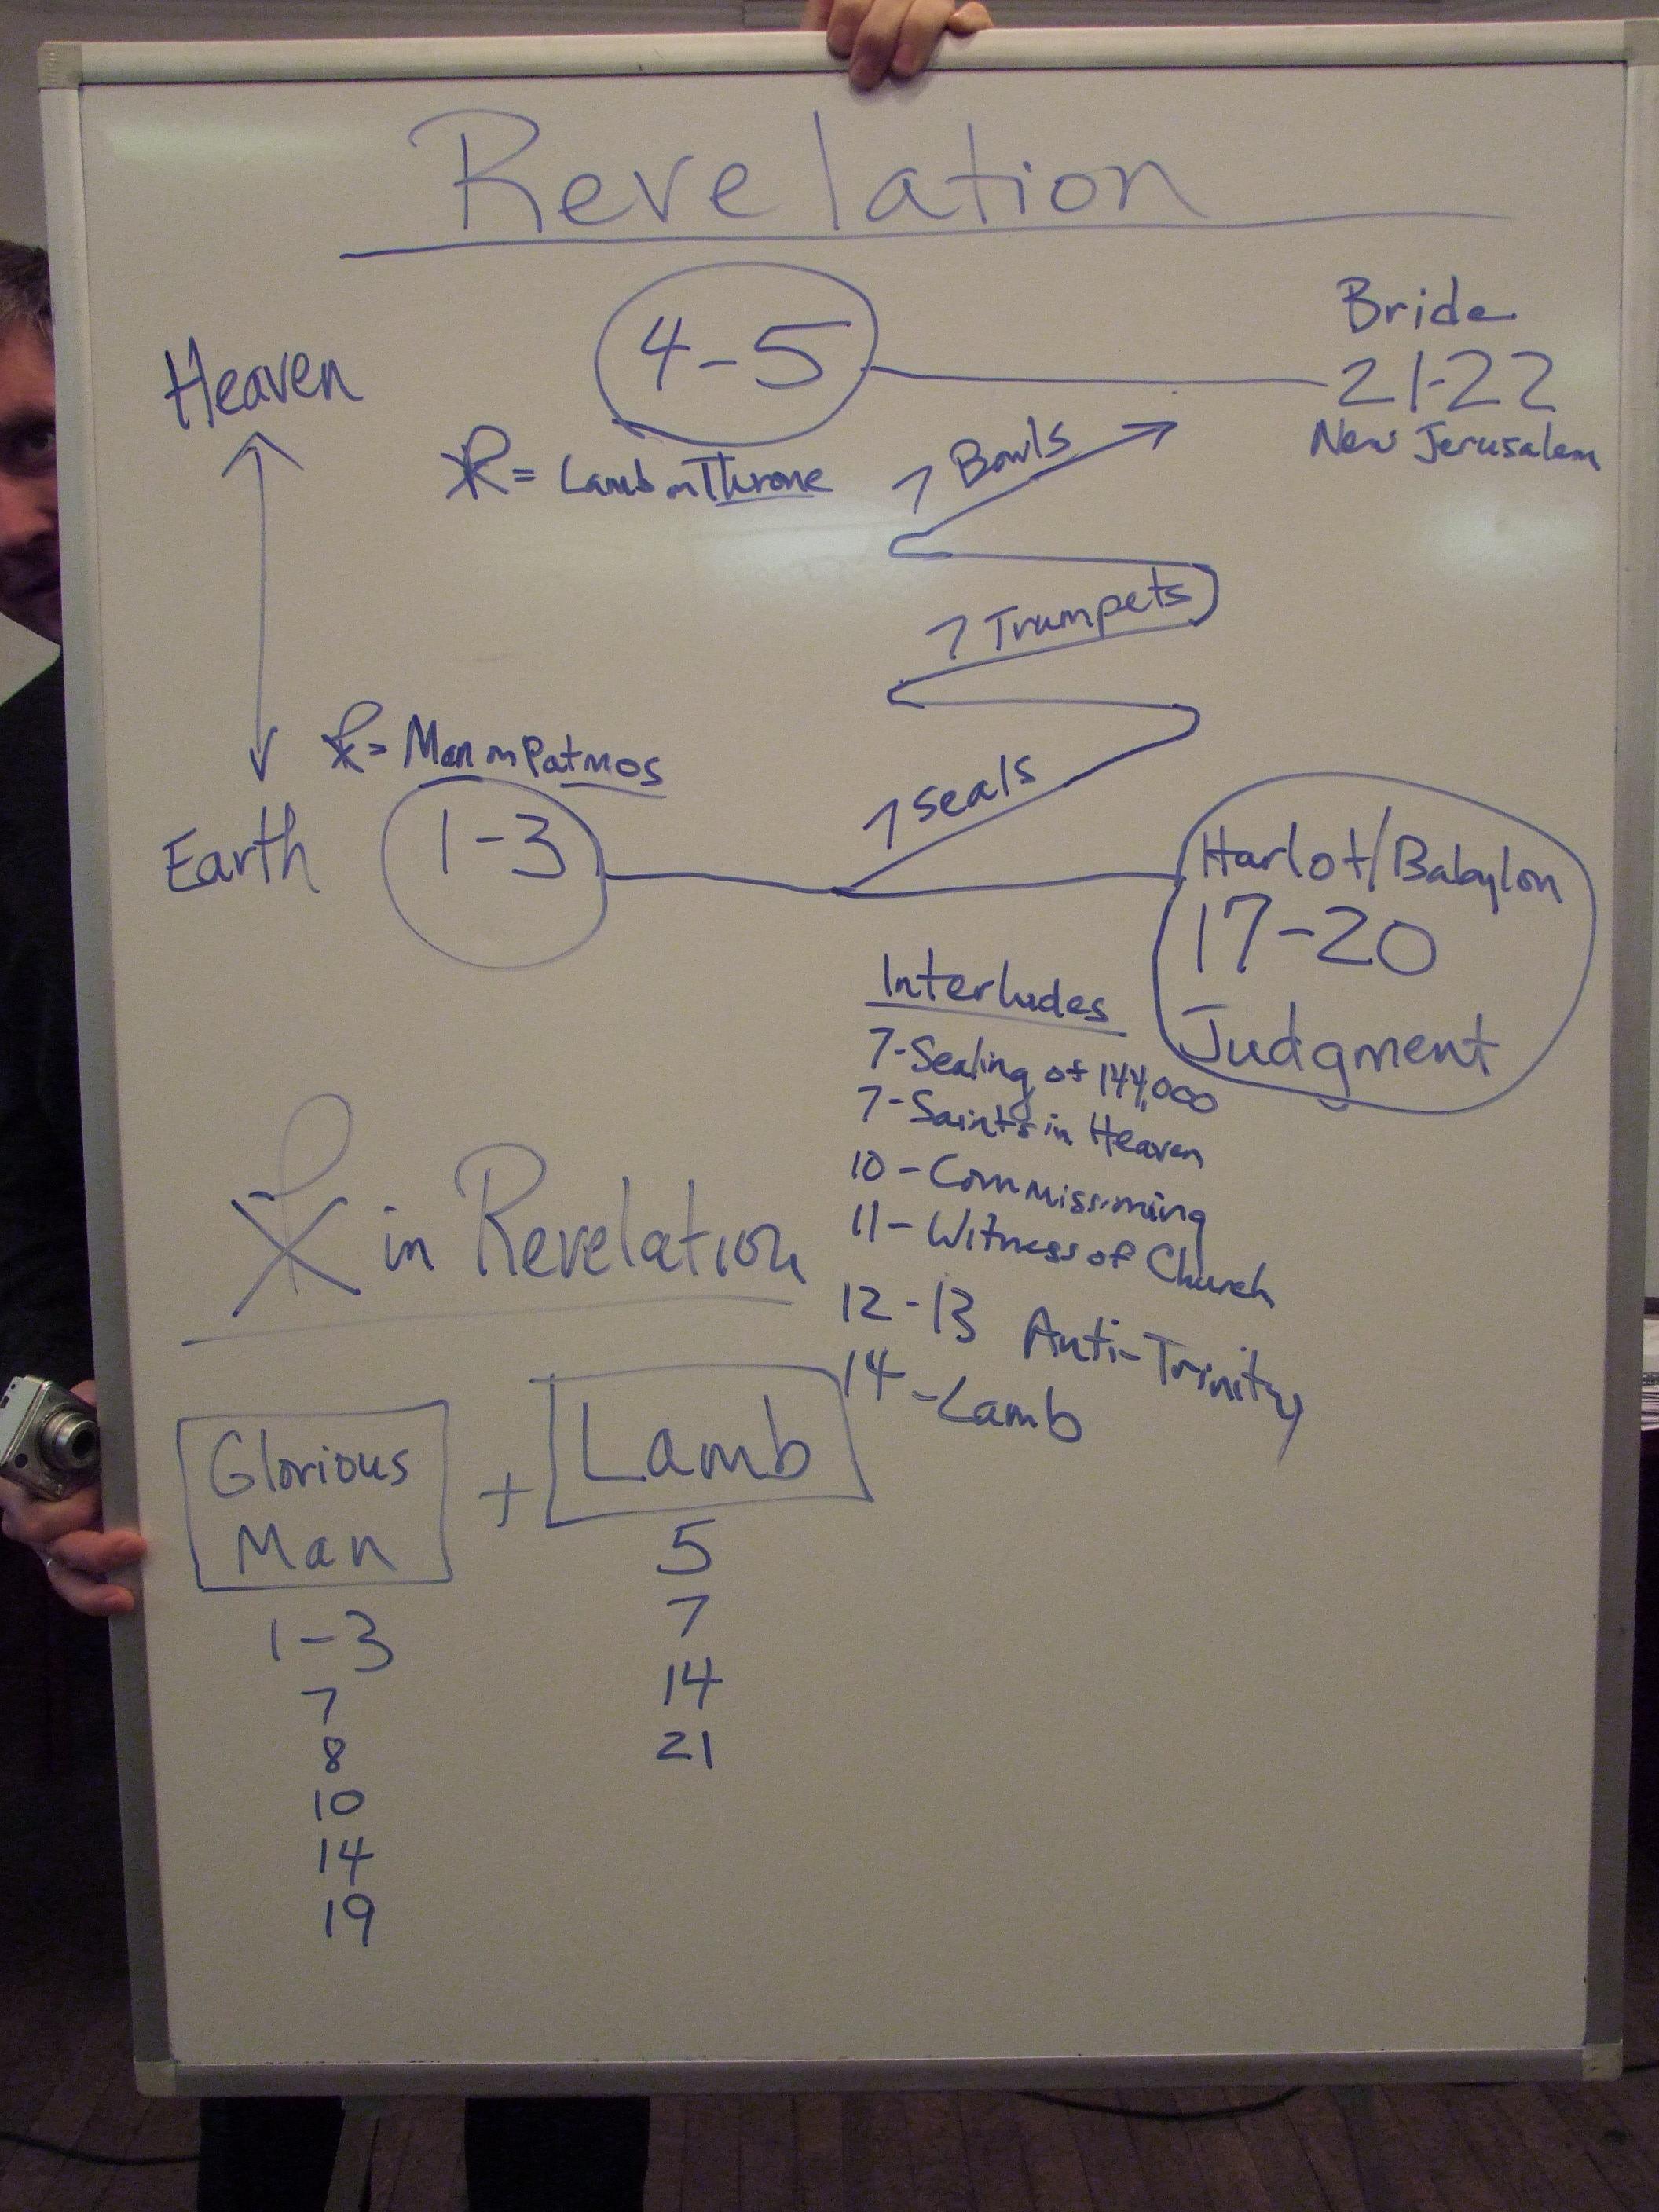 Revelation
Heaven
4-5
Bride
21-22
New Jerusalem
☧ = Lamb on Throne
7 Bowls
7 Trumpets
7 Seals
☧ = Man on Patmos
Earth
1-3
Harlot/Babylon
17-20
Judgment
Interludes
7-Sealing of 144,000
7-Saints in Heaven
10-Commissioning
11-Witness of Church
12-13 Anti-Trinity
14-Lamb
☧ in Revelation
Glorious
Man
1-3
7
8
10
14
19
+
Lamb
5
7
14
21